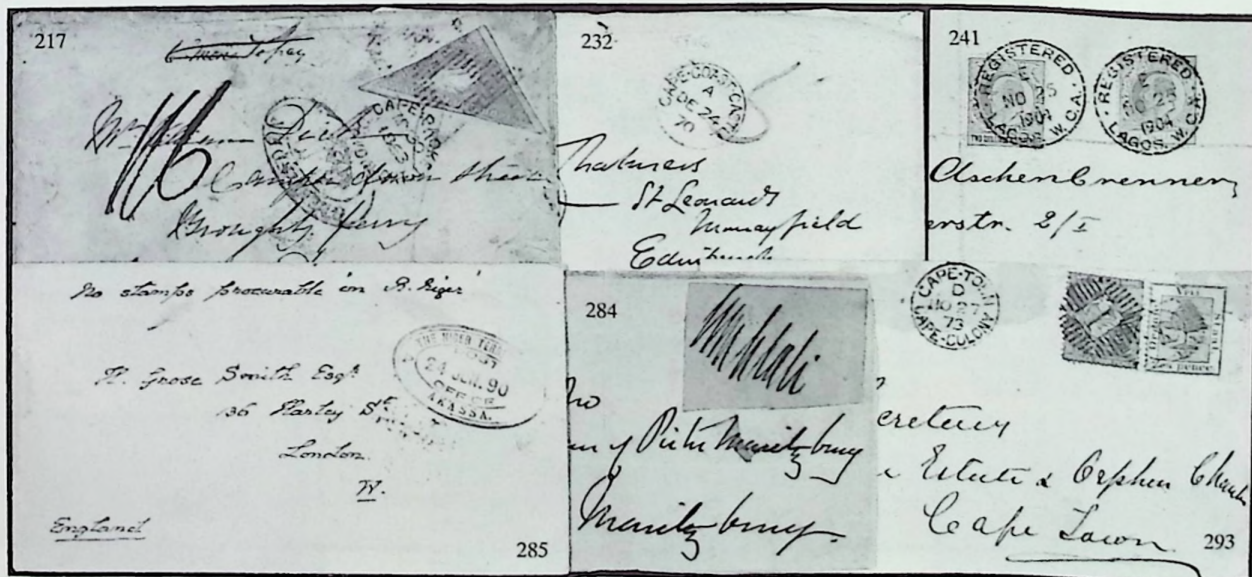 217
to pay
CAPE PACKET
1863
116
Broughty Ferry
232
CAPE-COAST-CASTLE
A
DE 24
70
Thalmers
St Leonards
Murrayfield
Edinburgh
241
REGISTERED
NO 25
1904
LAGOS. W.C.A.
REGISTERED
NO 25
1904
LAGOS. W.C.A.
Aschenbrenner,
erstr. 2/I
No stamps procurable in R. Niger
THE NIGER TERR
POST
24 JUN. 90
OFFICE
AKASSA.
H. Grose Smith Esqr
36 Harley St
London.
W.
England
285
284
of Pieter Maritzburg
Maritzburg.
CAPE-TOWN
D
NO 27
73
CAPE-COLONY
1
cretary
Estate & Orphan Cham
Cape Town
293